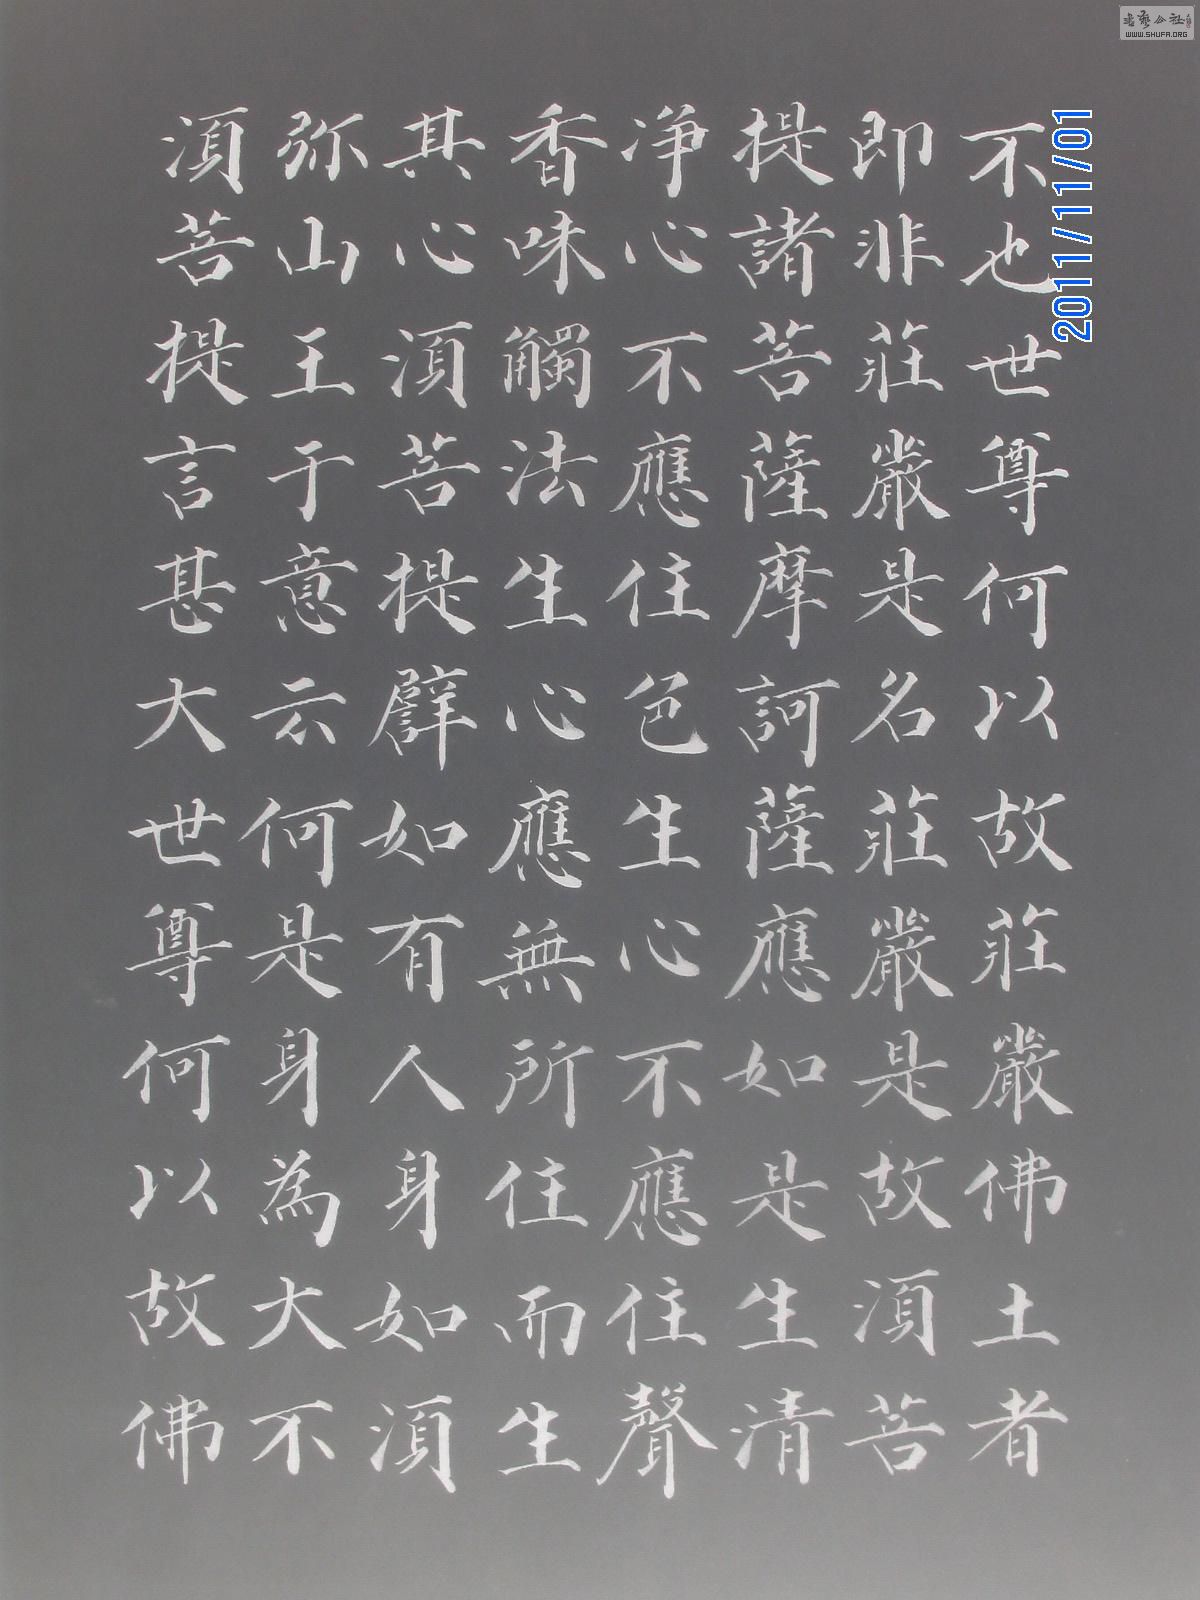 不也世尊何以故莊嚴佛土者
即非莊嚴是名莊嚴是故須菩
提諸菩薩摩訶薩應如是生清
凈心不應住色生心不應住聲
香味觸法生心應無所住而生
其心須菩提譬如有人身如須
弥山王于意云何是身為大不
須菩提言甚大世尊何以故佛
2011/11/01
书艺公社
WWW.SHUFA.ORG